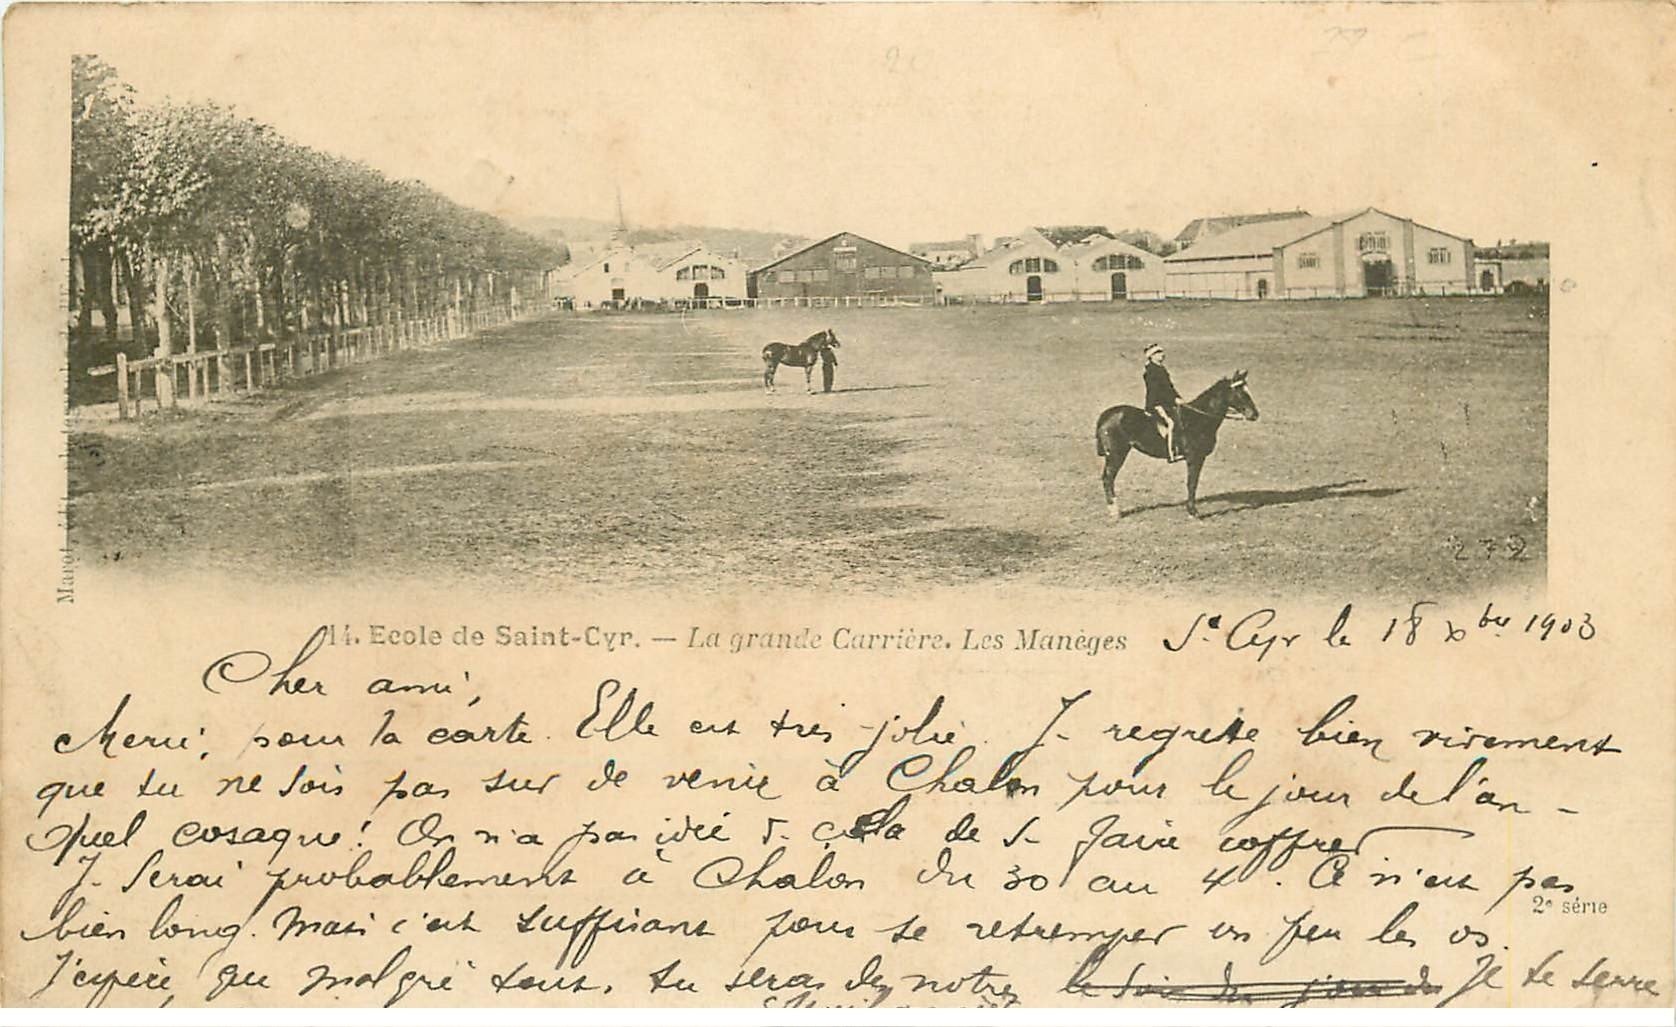 279
14. Ecole de Saint-Cyr. — La grande Carrière. Les Manèges
St Cyr le 18 Xbre 1903
Cher ami,
Merci, pour la carte. Elle est très jolie. Je regrette bien vivement
que tu ne sois pas sur de venir à Chalon pour le jour de l'an -
Quel cosaque! On n'a pas idée de cela de se faire coffrer
Je serai probablement à Chalon du 30 au 4. Ce n'est pas
2e série
bien long. Mais c'est suffisant pour se retremper un peu les os.
J'espère que malgré tout, tu seras des notres le soir du jour de Je te serre